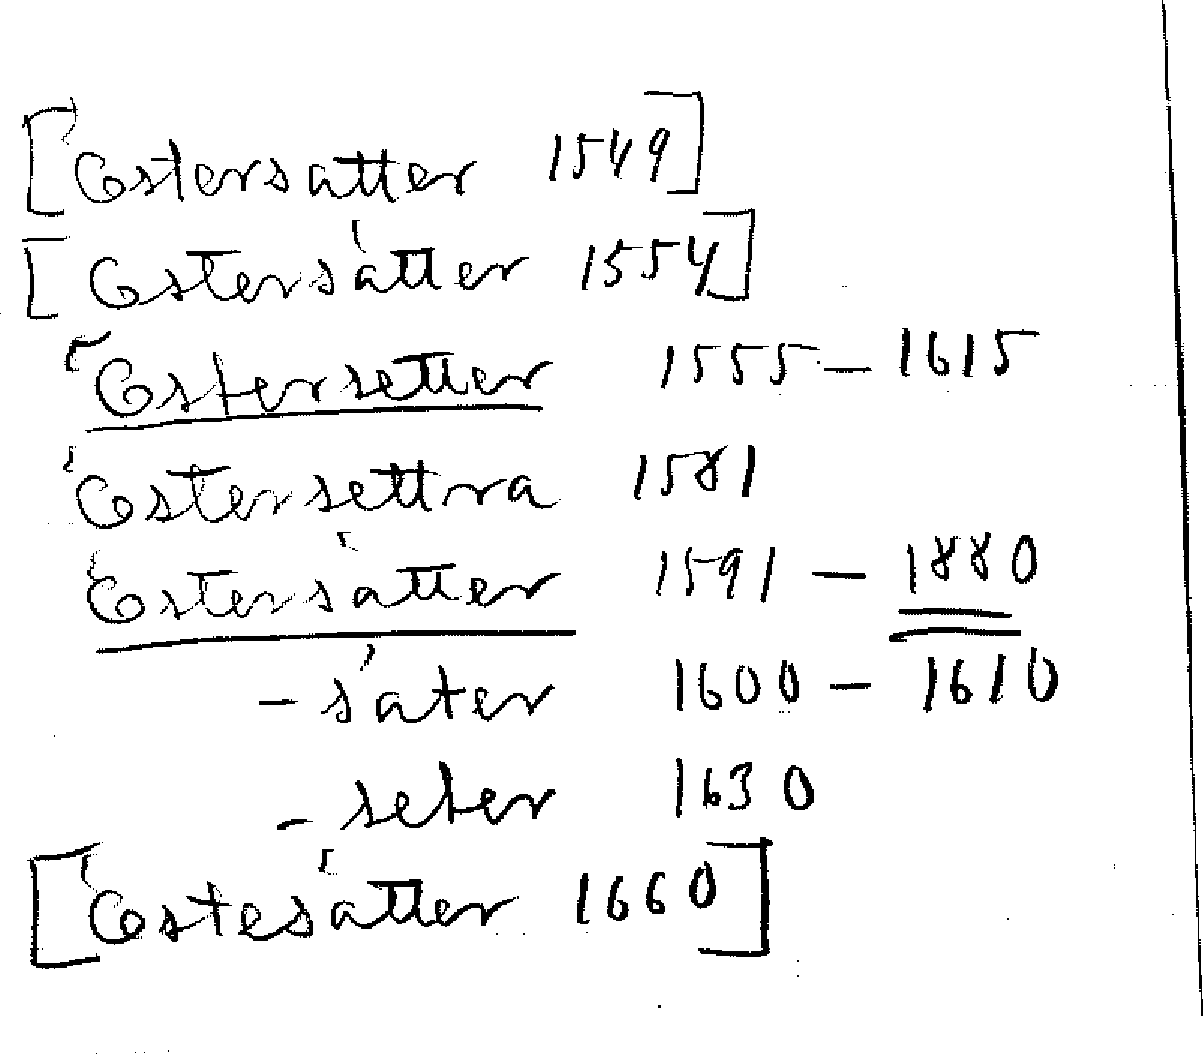 [Östersatter 1549]
[Ostersätter 1554]
Östersetter 1555 – 1615
Östersettra 1581
Östersätter 1591 – 1880
- säter 1600 – 1610
- seter 1630
[Östesätter 1660]